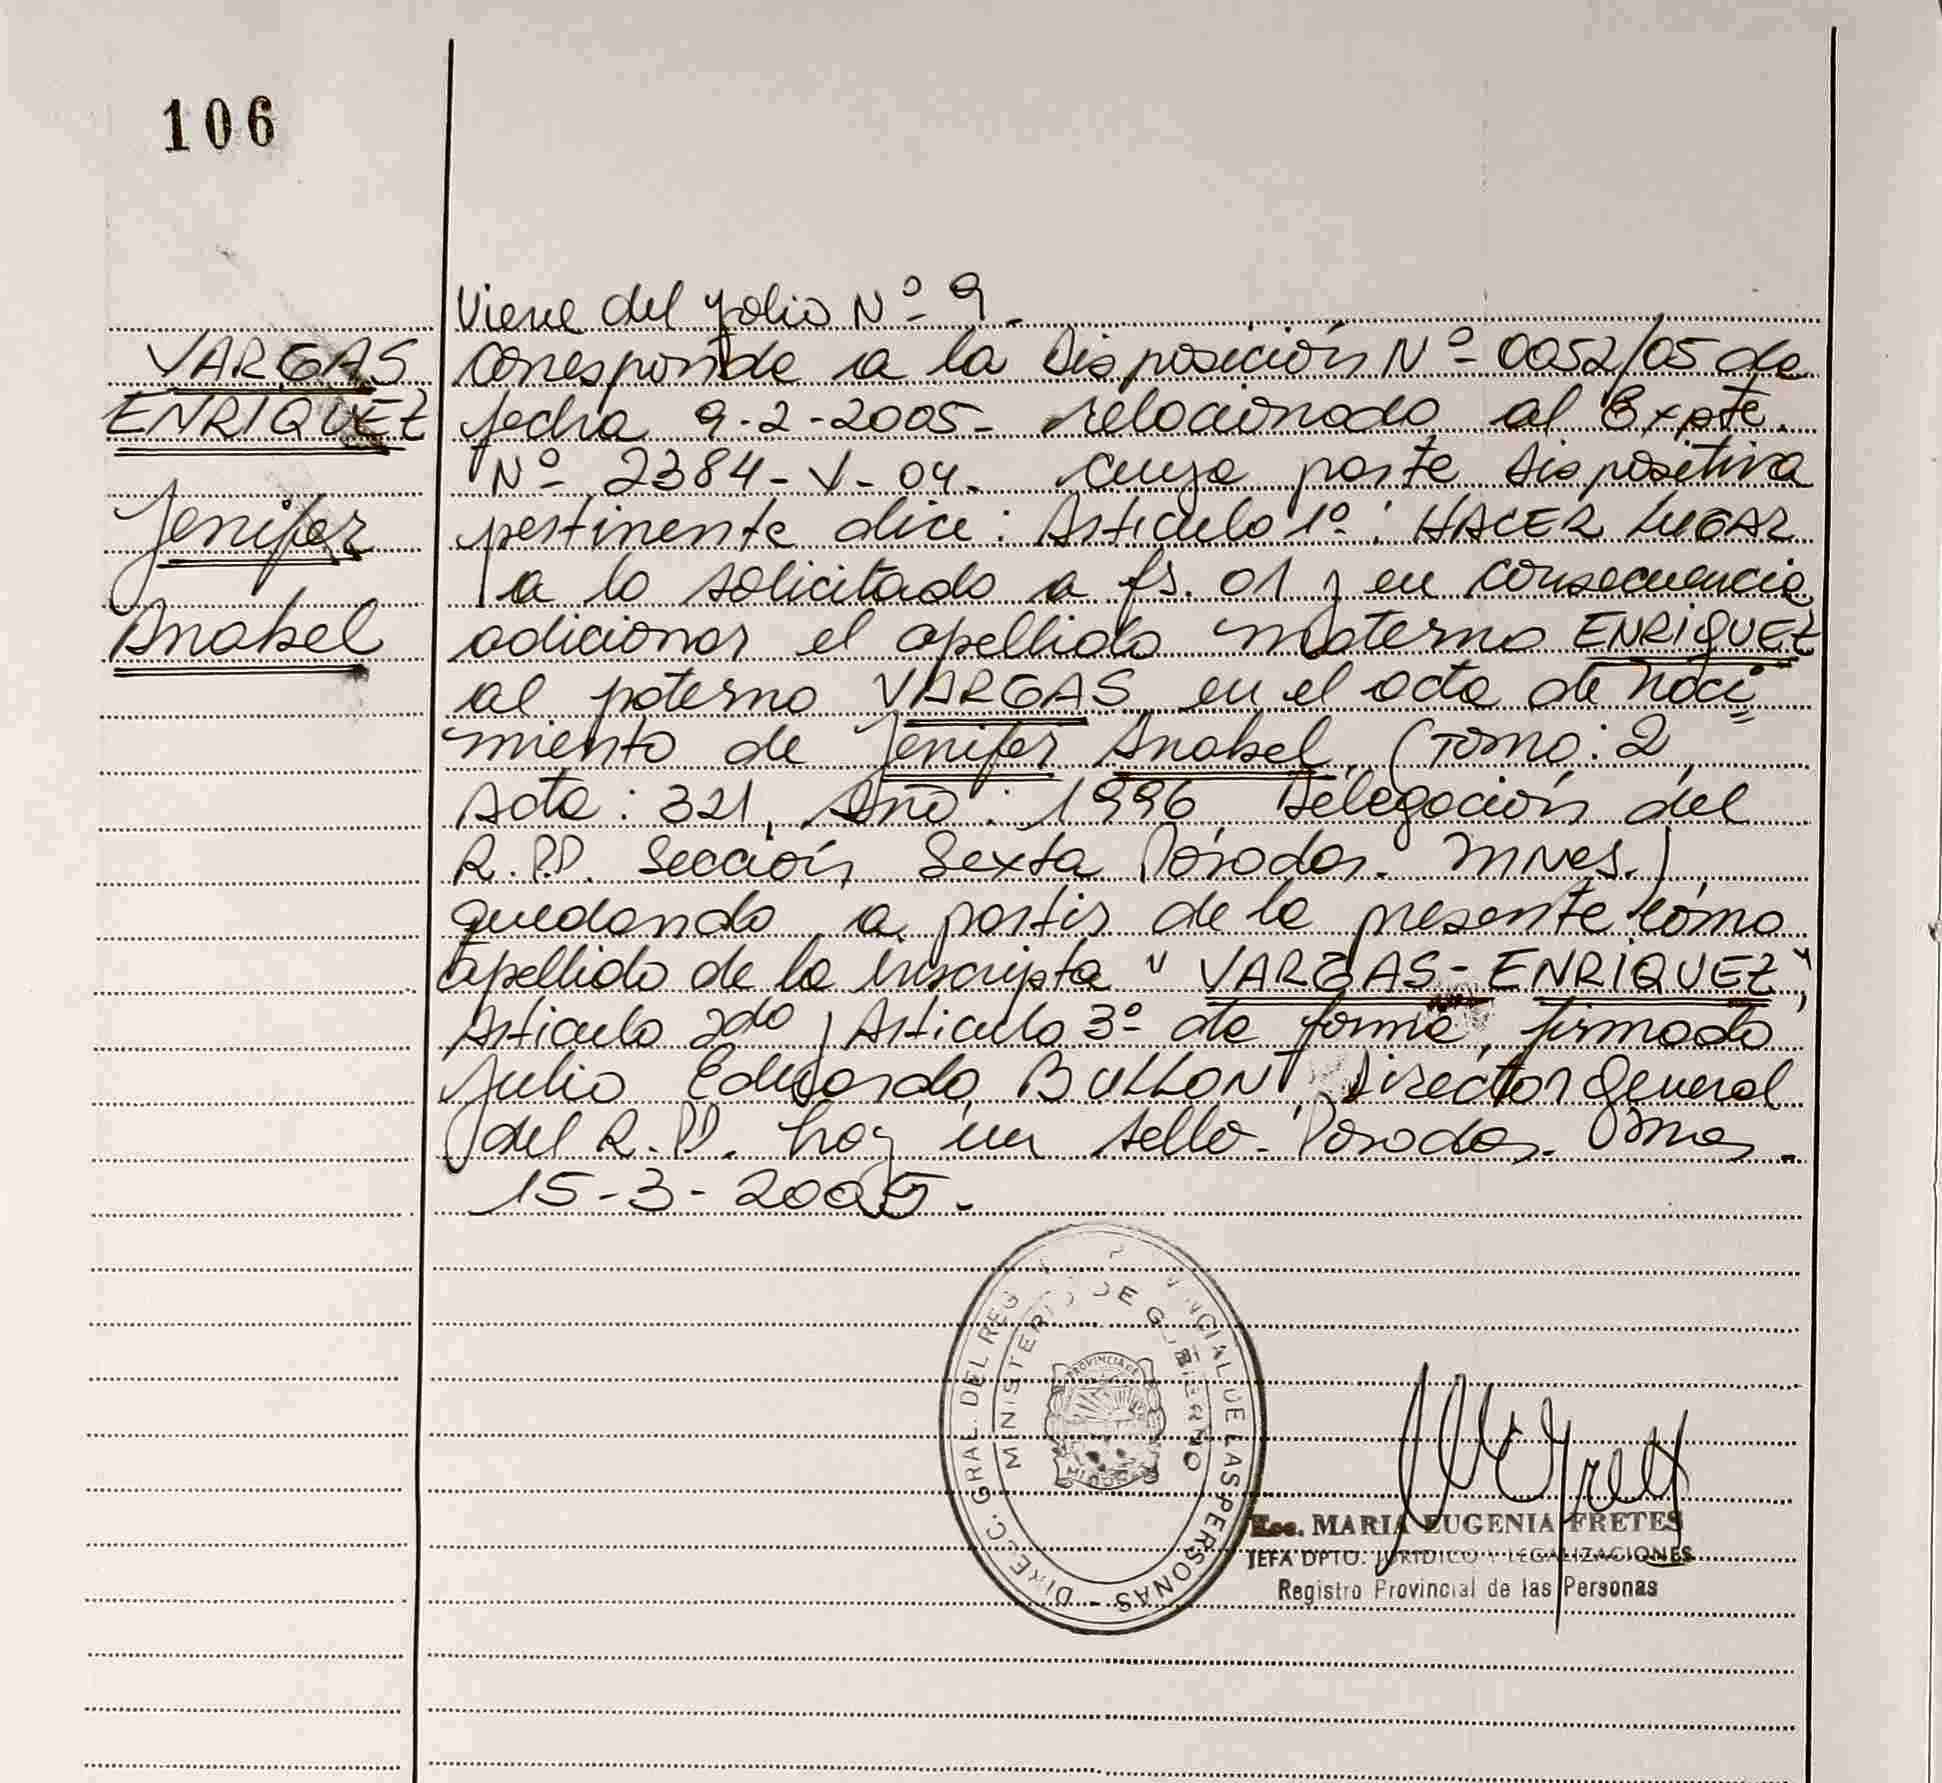 106
VARGAS
ENRIQUEZ
Jenifer
Anabel
Viene del folio Nº 9.
Corresponde a la Disposición Nº 0052/05 de
fecha 9-2-2005- relacionado al Expte.
Nº 2384-V-04. cuya parte dispositiva
pertinente dice: Articulo 1º: HACER LUGAR
a lo solicitado a fs. 01 y en consecuencia
adicionar el apellido materno ENRIQUEZ
al paterno VARGAS en el acta de naci=
miento de Jenifer Anabel, (Tomo: 2,
Acta: 321, Año: 1996, Delegación del
R.P.P. Sección Sexta Posadas. Mnes.)
quedando a partir de la presente como
apellido de la inscripta "VARGAS-ENRIQUEZ",
Articulo 2do y Articulo 3º de forma, firmado
Julio Eduardo BULLON, Director General
del R.P.P. hay un sello. Posadas.
15-3-2005.
DIRECC. GRAL. DEL REG PROVINCIAL DE LAS PERSONAS -
MINISTERIO DE GOBIERNO
PROVINCIA DE
Esc. MARIA EUGENIA FRETES
JEFA DPTO. JURIDICO Y LEGALIZACIONES
Registro Provincial de las Personas